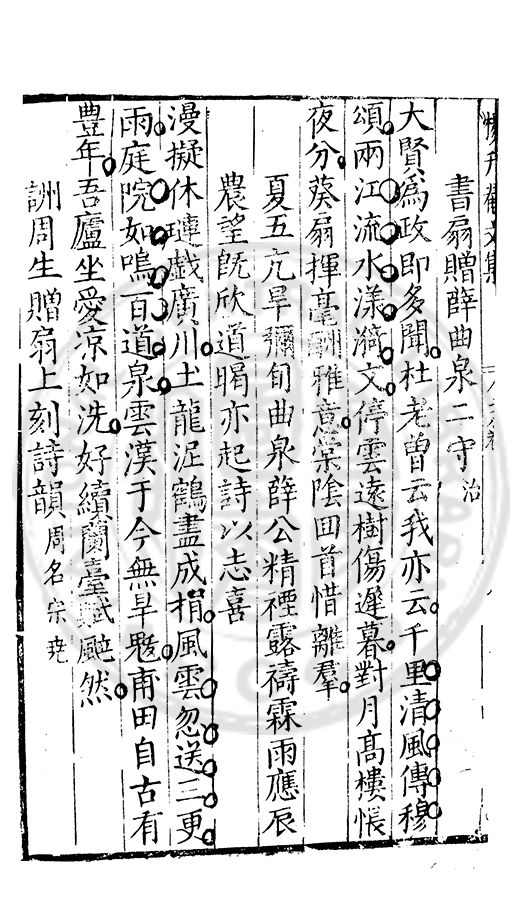 書扇贈薛曲泉二守治
大賢爲政即多聞杜老曾云我亦云千里清風傳穆
頌兩江流水漾漪文停雲遠樹傷遲暮對月高樓悵
夜分葵扇揮毫酬雅意棠陰回首惜離羣
夏五亢旱彌旬曲泉薛公精禋露禱霖雨應辰
農望旣欣道暍亦起詩以志喜
漫擬休璉戲廣川土龍泥鶴盡成捐風雲忽送三更
雨庭院如鳴百道泉雲漢于今無旱魃甫田自古有
豊年吾廬坐愛凉如洗好續蘭臺賦颯然
詶周生贈扇上刻詩韻周名宗堯